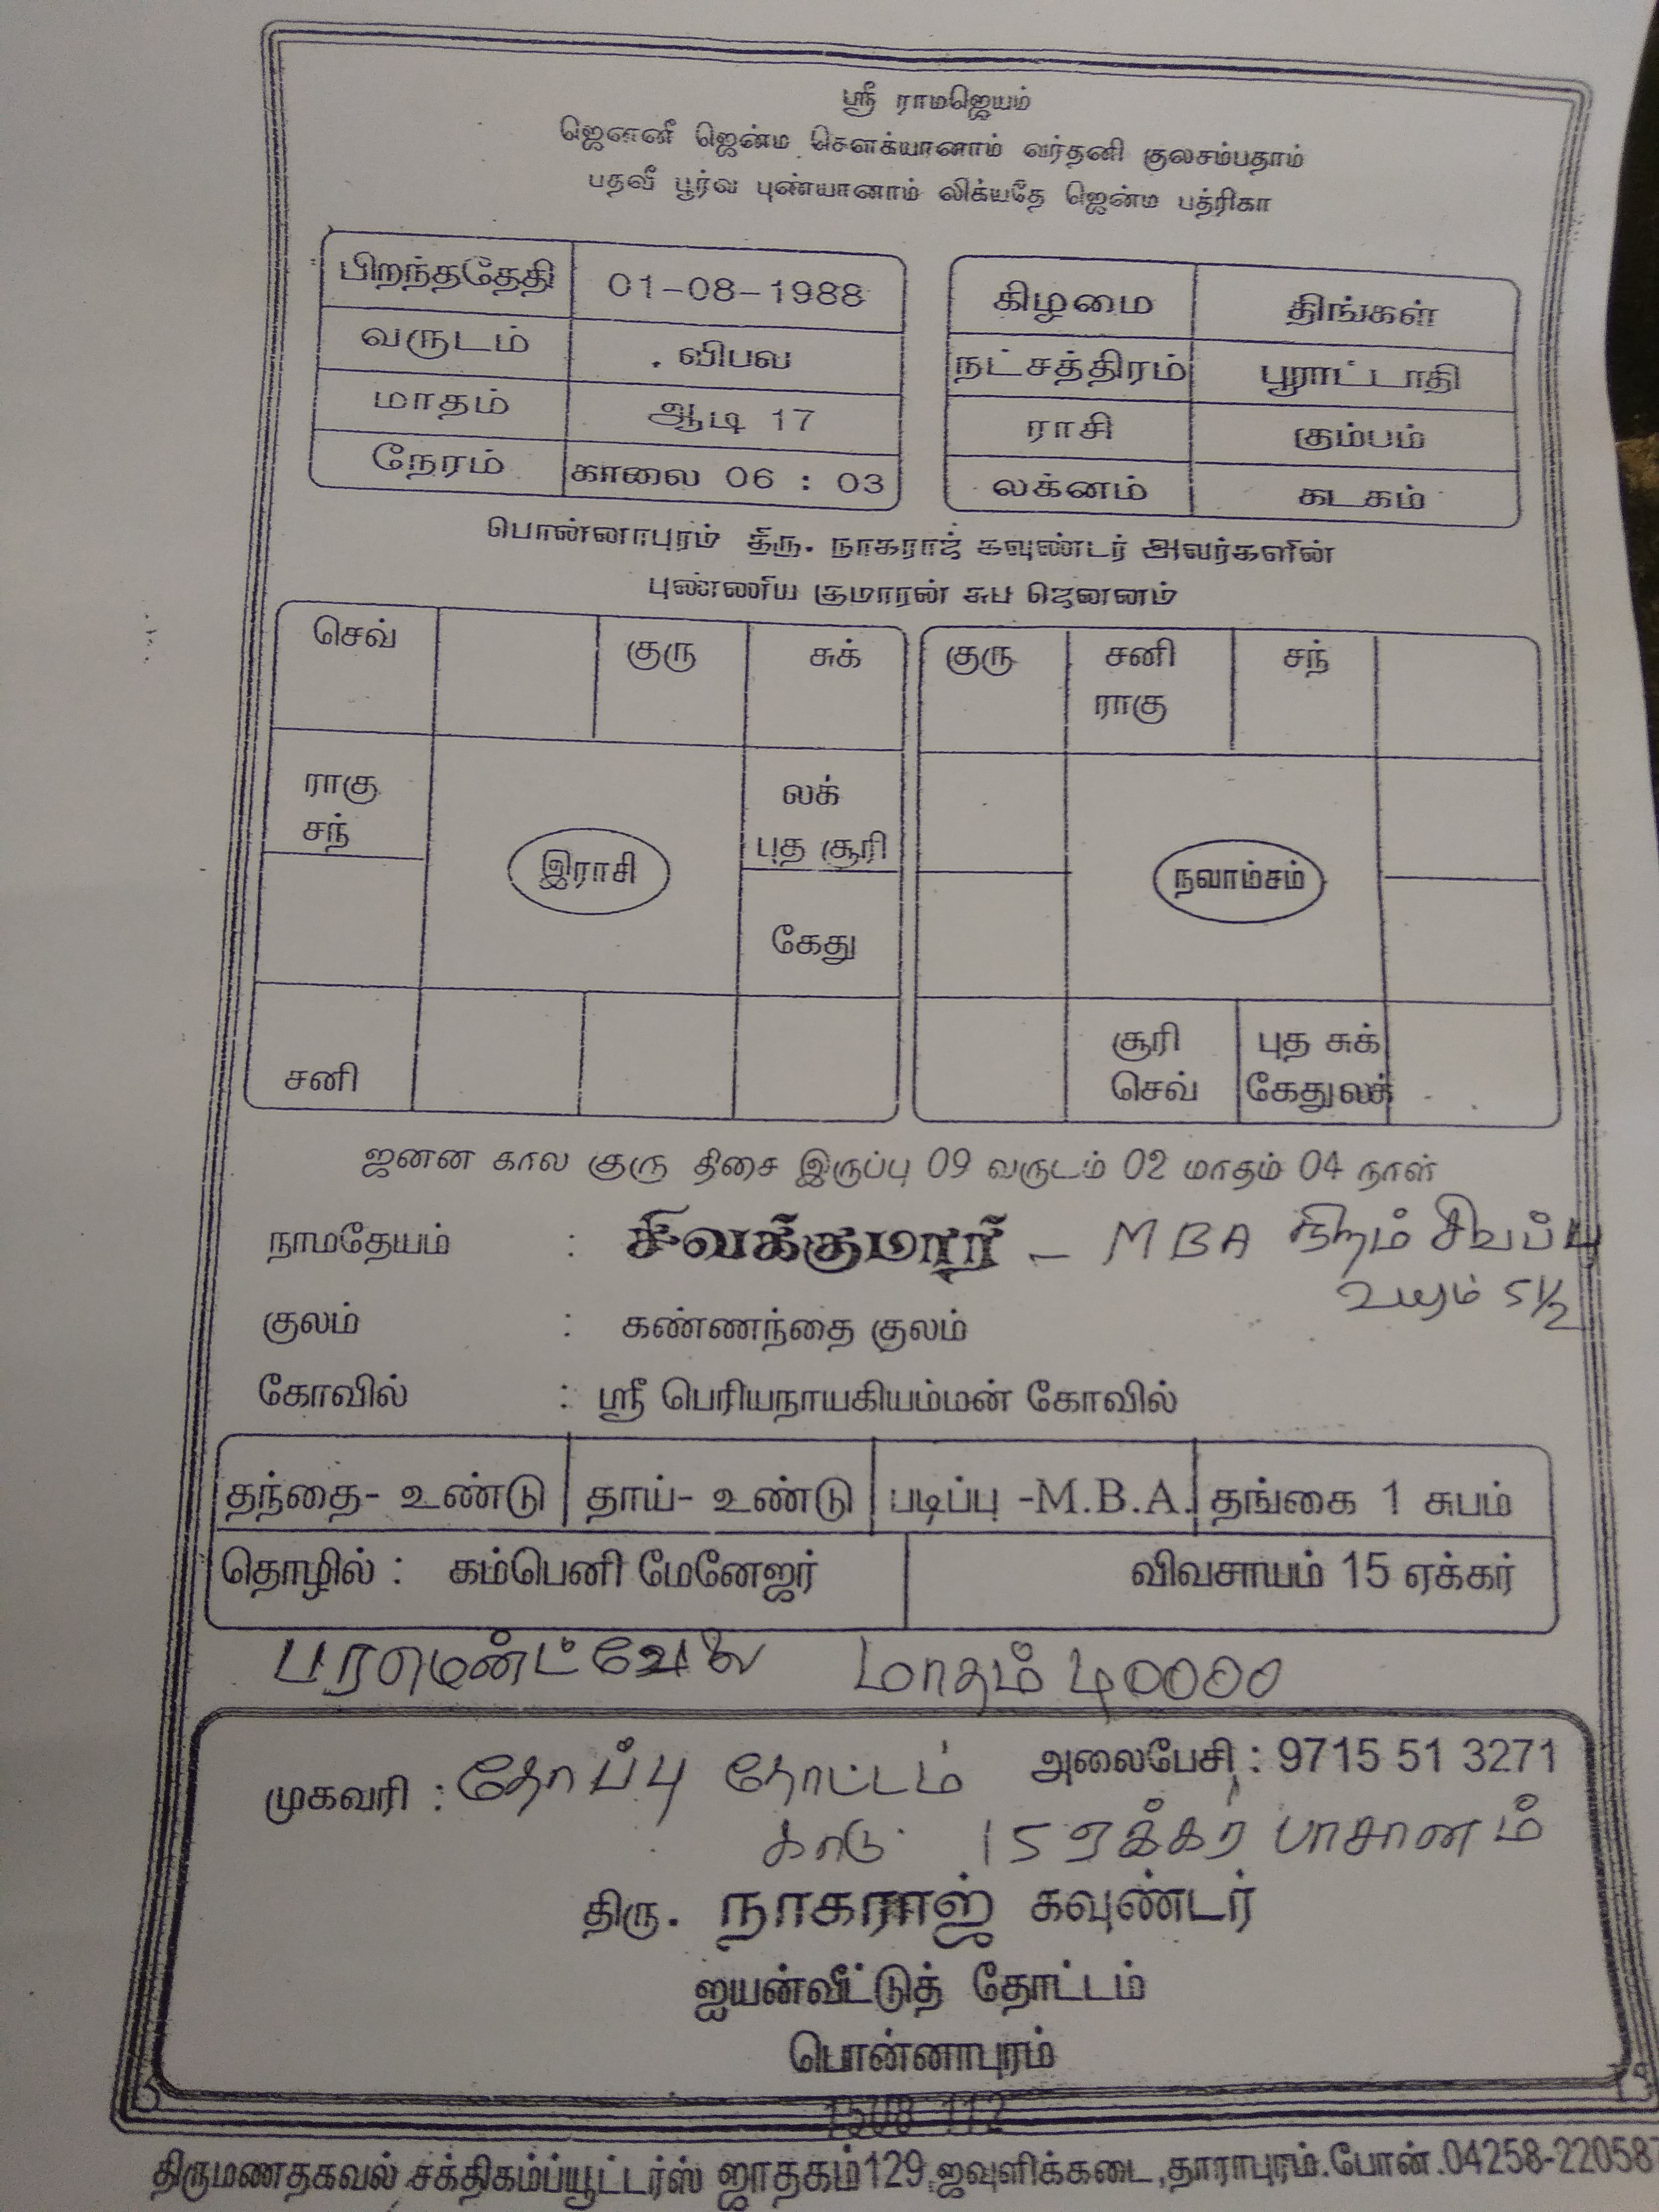 ஸ்ரீ ராமஜெயம்
ஜெனனீ ஜென்ம சௌக்யானாம் வர்தனி குலசம்பதாம்
பதவீ பூர்வ புண்யானாம் லிக்யதே ஜென்ம பத்ரிகா
பிறந்ததேதி 01-08-1988 கிழமை திங்கள்
வருடம் விபவ நட்சத்திரம் பூராட்டாதி
மாதம் ஆடி 17 ராசி கும்பம்
நேரம் காலை 06 : 03 லக்னம் கடகம்
பொன்னாபுரம் திரு. நாகராஜ் கவுண்டர் அவர்களின்
புண்ணிய குமாரன் சுப ஜெனனம்
செவ் குரு சுக் குரு சனி சந்
ராகு
ராகு லக்
சந் புத சூரி
இராசி நவாம்சம்
கேது
சூரி புத சுக்
சனி செவ் கேதுலக்
ஜனன கால குரு திசை இருப்பு 09 வருடம் 02 மாதம் 04 நாள்
நாமதேயம் : சிவக்குமார் – MBA நிறம் சிவப்பு
உயரம் 5½
குலம் : கண்ணந்தை குலம்
கோவில் : ஸ்ரீ பெரியநாயகியம்மன் கோவில்
தந்தை- உண்டு தாய்- உண்டு படிப்பு -M.B.A. தங்கை 1 சுபம்
தொழில் : கம்பெனி மேனேஜர் விவசாயம் 15 ஏக்கர்
மாதம் 40000
முகவரி : தோப்பு தோட்டம் அலைபேசி : 9715 51 3271
காடு 15 ஏக்கர் பாசானம்
திரு. நாகராஜ் கவுண்டர்
ஐயன்வீட்டுத் தோட்டம்
பொன்னாபுரம்
1508 112
திருமணதகவல் சக்திகம்ப்யூட்டர்ஸ் ஜாதகம்129,ஜவுளிக்கடை,தாராபுரம்.போன்.04258-220587